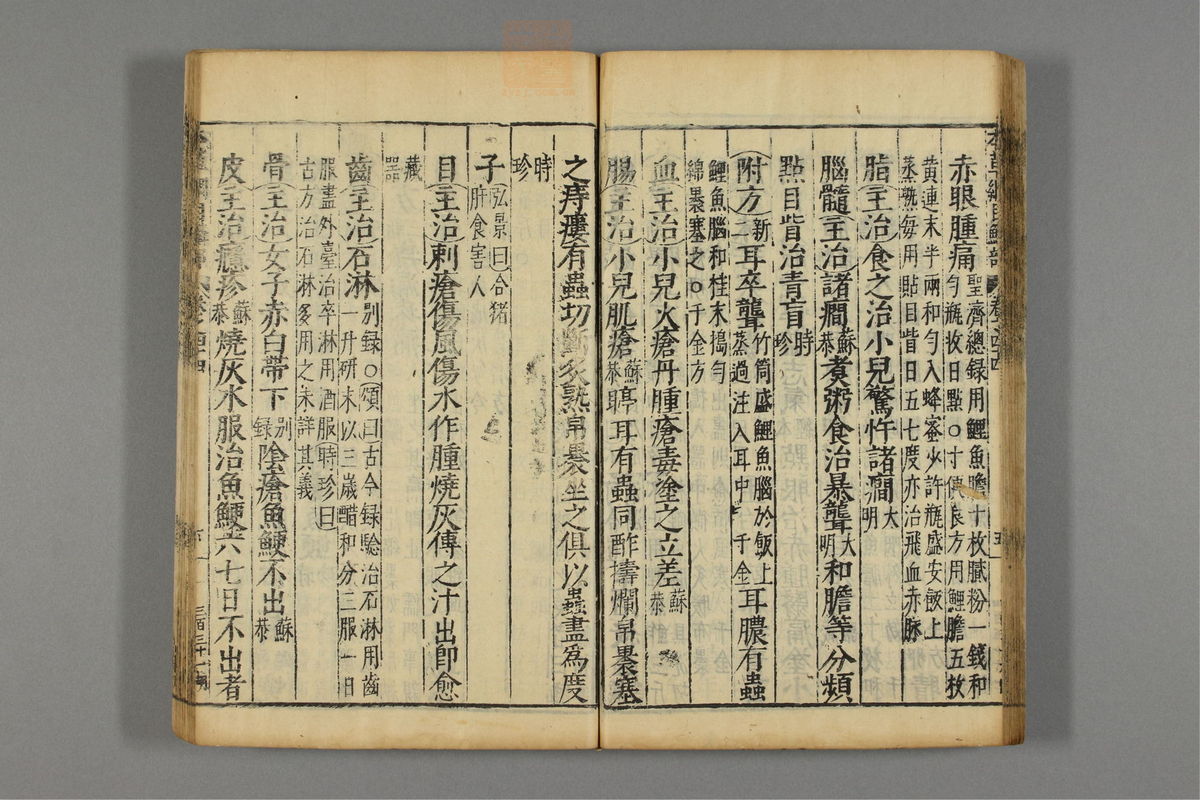 赤眼腫痛聖濟總録用鯉魚膽十枚膩粉一錢和勻瓶收日點○十便良方用鯉膽五枚
黃連末半兩和勻入蜂蜜少許瓶盛安飯上
蒸熟每用貼目眥日五七度亦治飛血赤脉
脂主治食之治小兒驚忤諸癎大明
腦髓主治諸癎蘇恭煑粥食治暴聾大明和膽等分頻
點目眥治青盲時珍
附方新二耳卒聾竹筒盛鯉魚腦於飯上蒸過注入耳中千金耳膿有蟲
鯉魚腦和桂末搗勻
綿褁塞之○千金方
血主治小兒火瘡丹腫瘡毒塗之立差蘇恭
腸主治小兒肌瘡蘇恭聤耳有蟲同酢擣爛帛褁塞
之痔瘻有蟲切斷炙熟帛褁坐之俱以蟲盡為度
時珍
子弘景曰合猪肝食害人
目主治刺瘡傷風傷水作腫燒灰傅之汁出卽愈
藏器
齒主治石淋別録○頌曰古今録驗治石淋用齒一升研末以三歲醋和分三服一日
服盡外臺治卒淋用酒服時珍曰
古方治石淋多用之未詳其義
骨主治女子赤白帶下別録陰瘡魚鯁不出蘇恭
皮主治癮疹蘇恭燒灰水服治魚鯁六七日不出者